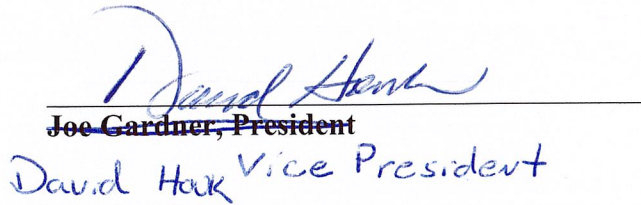 David Hank
Joe Gardner, President
David Hauk Vice President